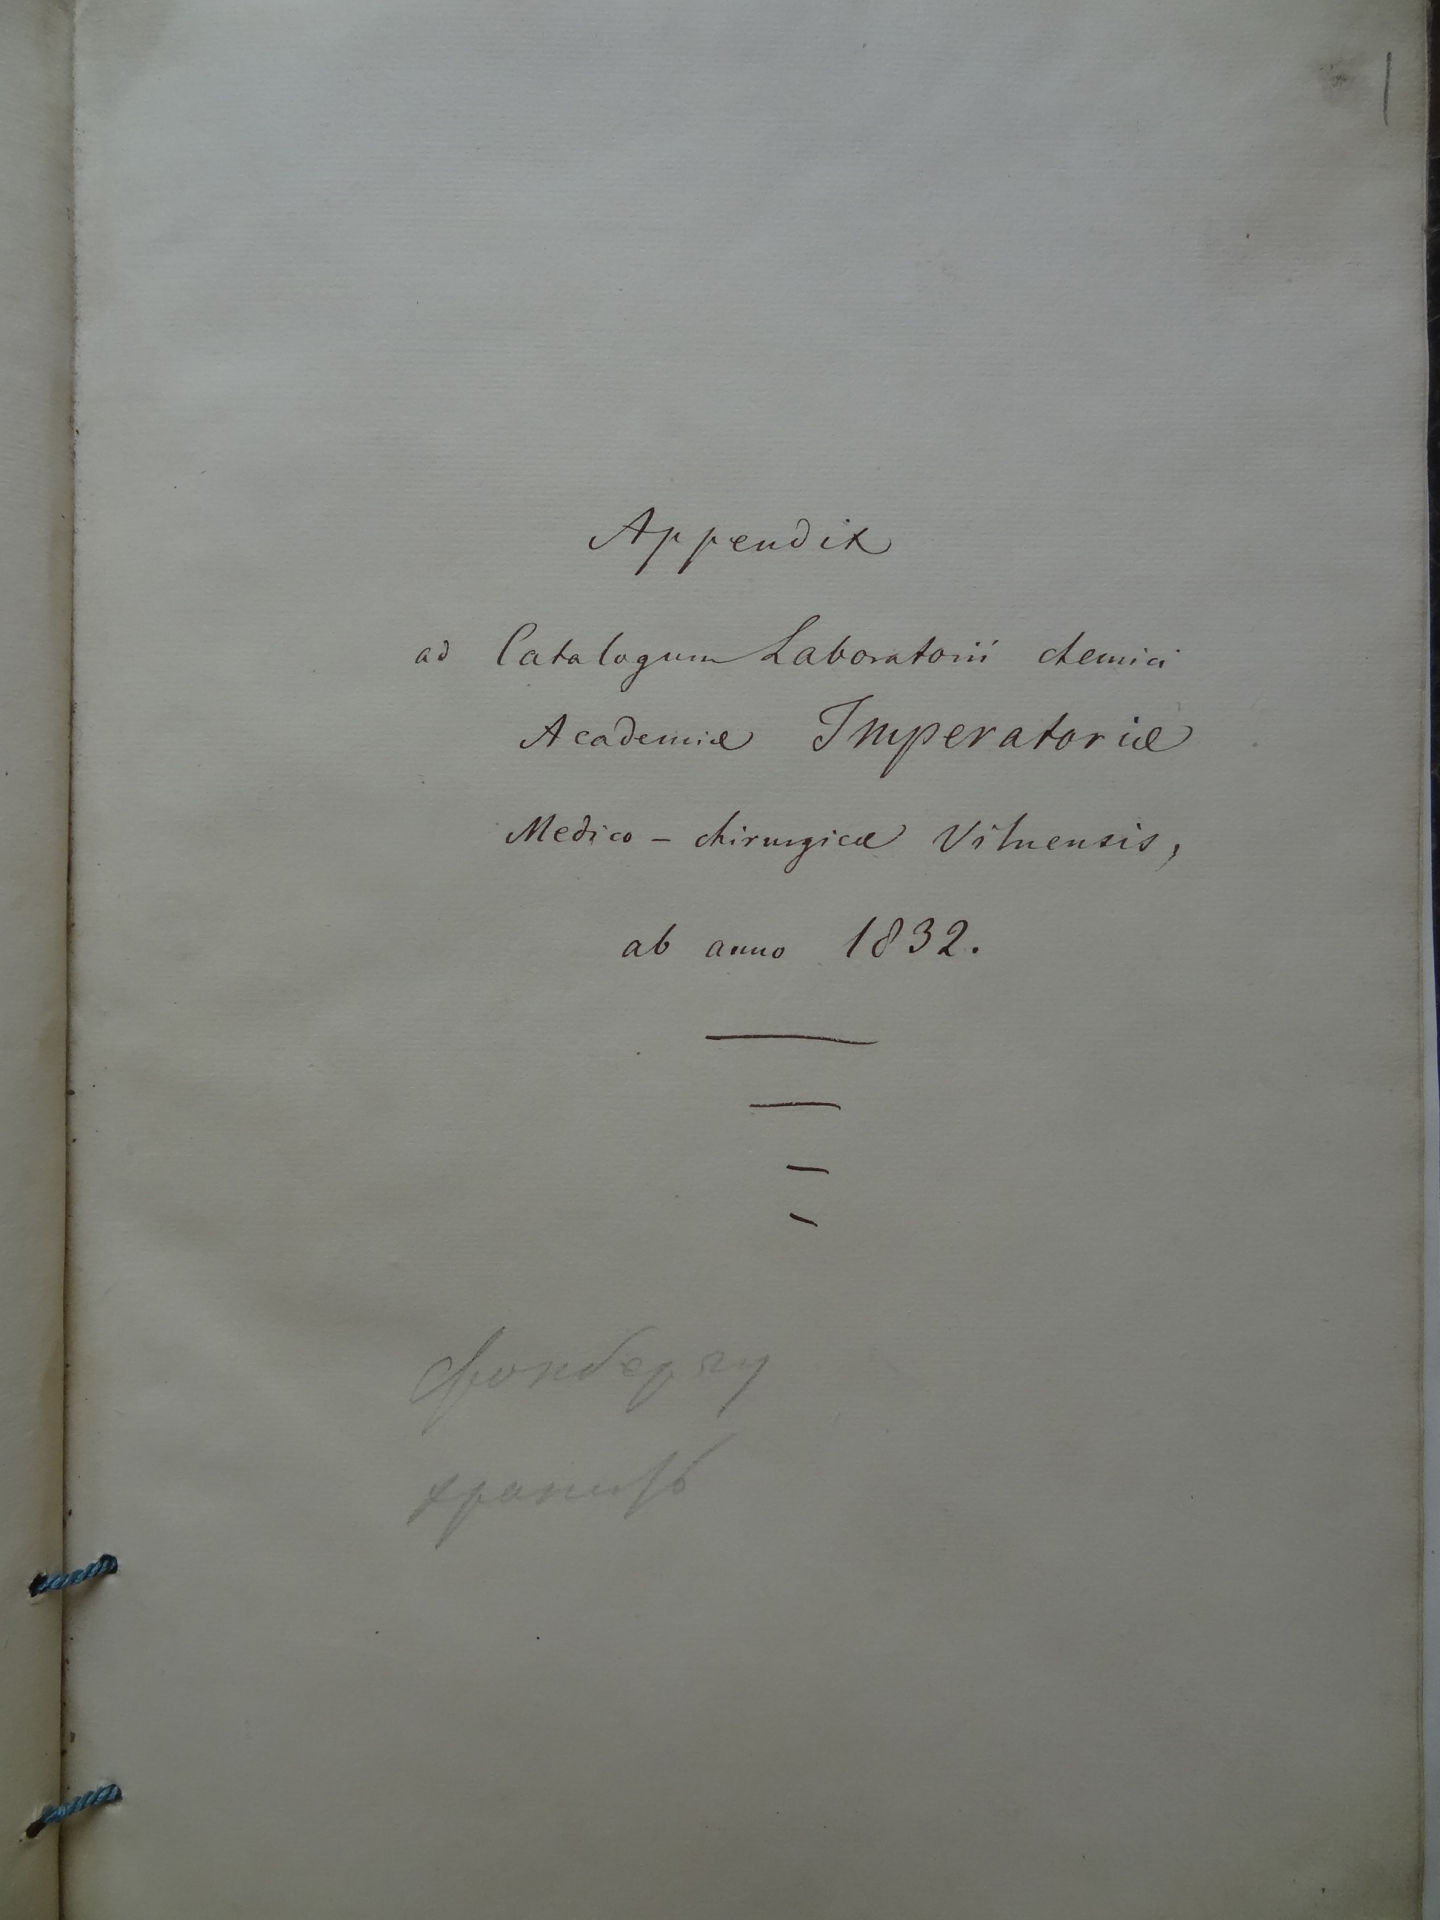 1
Appendix
ad Catalogum Laboratorii chemici
Academiæ Imperatoriæ
Medico - chirurgicæ Vilnensis,
ab anno 1832.
Фонбергу
хранить